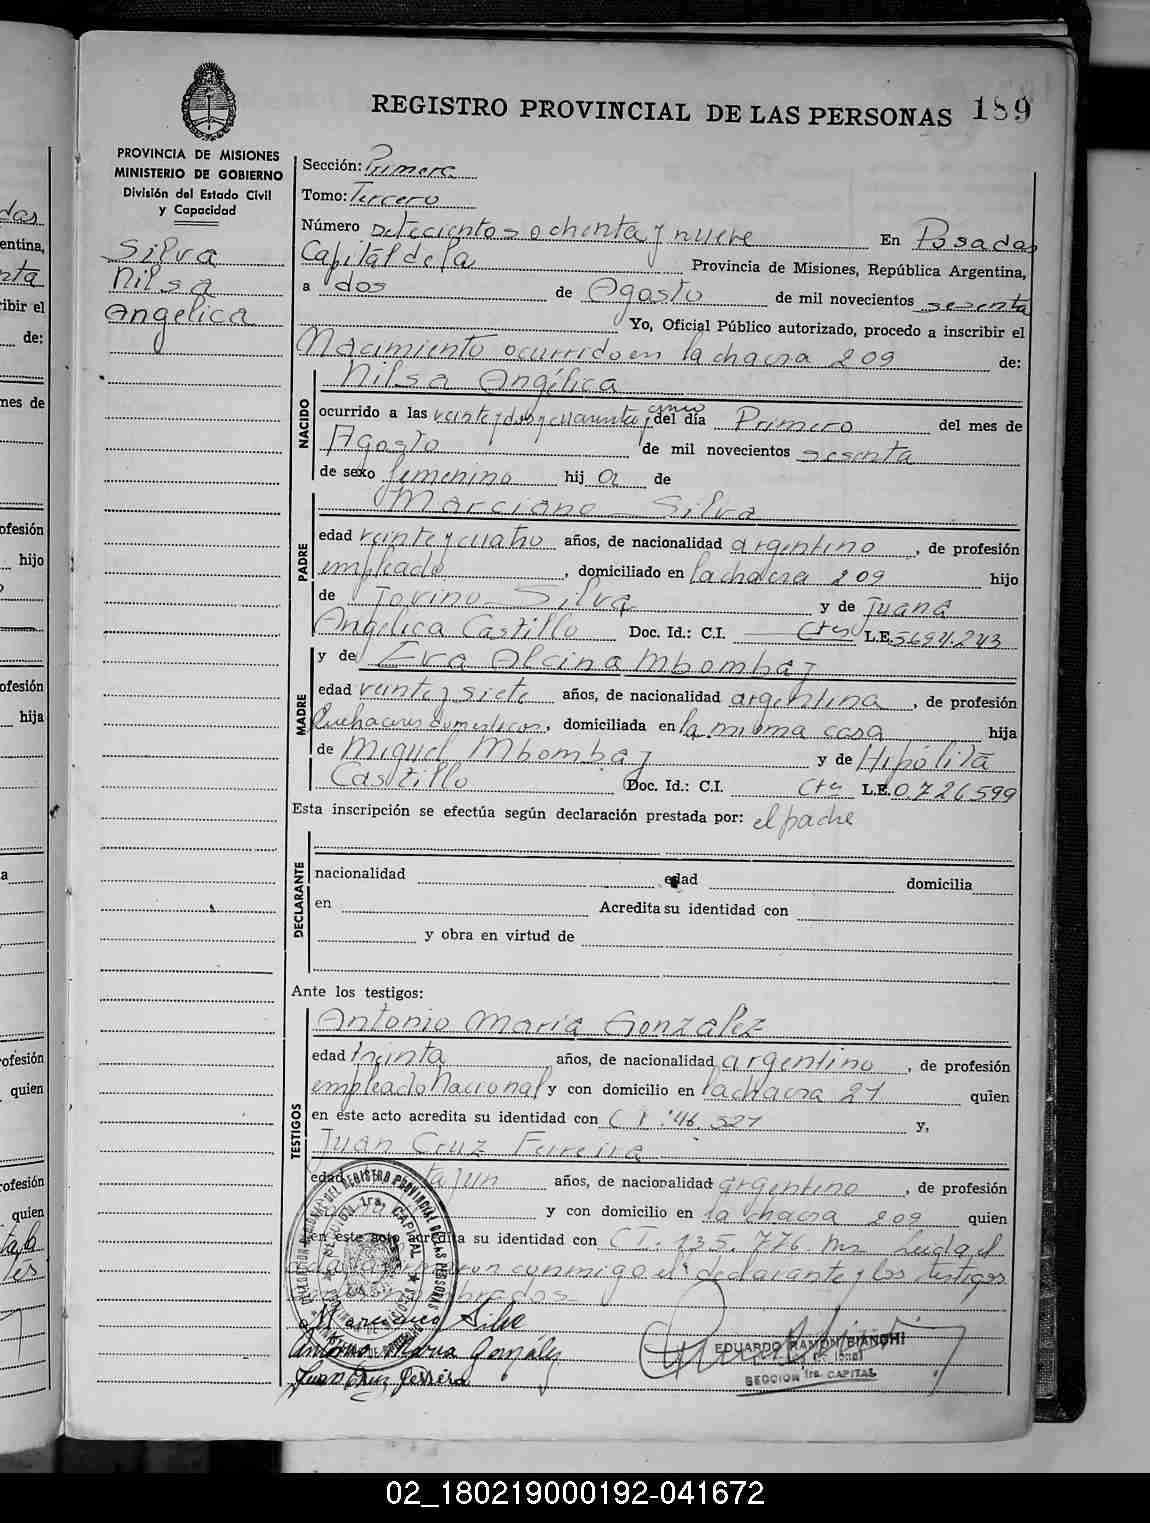 REGISTRO PROVINCIAL DE LAS PERSONAS 189
PROVINCIA DE MISIONES
MINISTERIO DE GOBIERNO
División del Estado Civil
y Capacidad
Silva
Nilsa
Angélica
Sección: Primera
Tomo: Tercero
Número Setecientos ochenta y nueve En Posadas
Capital de la Provincia de Misiones, República Argentina,
a dos de Agosto de mil novecientos sesenta
Yo, Oficial Público autorizado, procedo a inscribir el
Nacimiento ocurrido en la chacra 209 de:
NACIDO
Nilsa Angélica
ocurrido a las veinte y dos y cuarenta y cinco del día Primero del mes de
Agosto de mil novecientos sesenta
de sexo femenino hij a de
PADRE
Marciano Silva
edad veinte y cuatro años, de nacionalidad argentino, de profesión
empleado, domiciliado en la chacra 209 hijo
de Silva y de Juana
Angélica Castillo Doc. Id.: C.I. Ctes L.E. 5694.243
MADRE
y de Eva Alcina Mbombaj
edad veinte y siete años, de nacionalidad argentina, de profesión
Quehaceres domesticos, domiciliada en la misma casa hija
de Miguel Mbombaj y de Hipólita
Castillo Doc. Id.: C.I. Ctes L.E. 0.726599
Esta inscripción se efectúa según declaración prestada por: el padre
DECLARANTE
nacionalidad edad domicilia
en Acredita su identidad con
y obra en virtud de
Ante los testigos:
TESTIGOS
Antonio María Gonzalez
edad treinta años, de nacionalidad argentino, de profesión
empleado Nacional y con domicilio en la chacra 21 quien
en este acto acredita su identidad con C I. 46.527 y,
Juan Cruz Ferreira
edad años, de nacionalidad argentino, de profesión
y con domicilio en la chacra 209 quien
en este acto acredita su identidad con C I. 135.776. Leída el
acta firmaron conmigo el declarante y los testigos
Marciano Silva
Antonio Maria Gonzáles
Juan Cruz Ferreira
EDUARDO RAMON BIANCHI
SECCION 1ra. CAPITAL
02_180219000192-041672